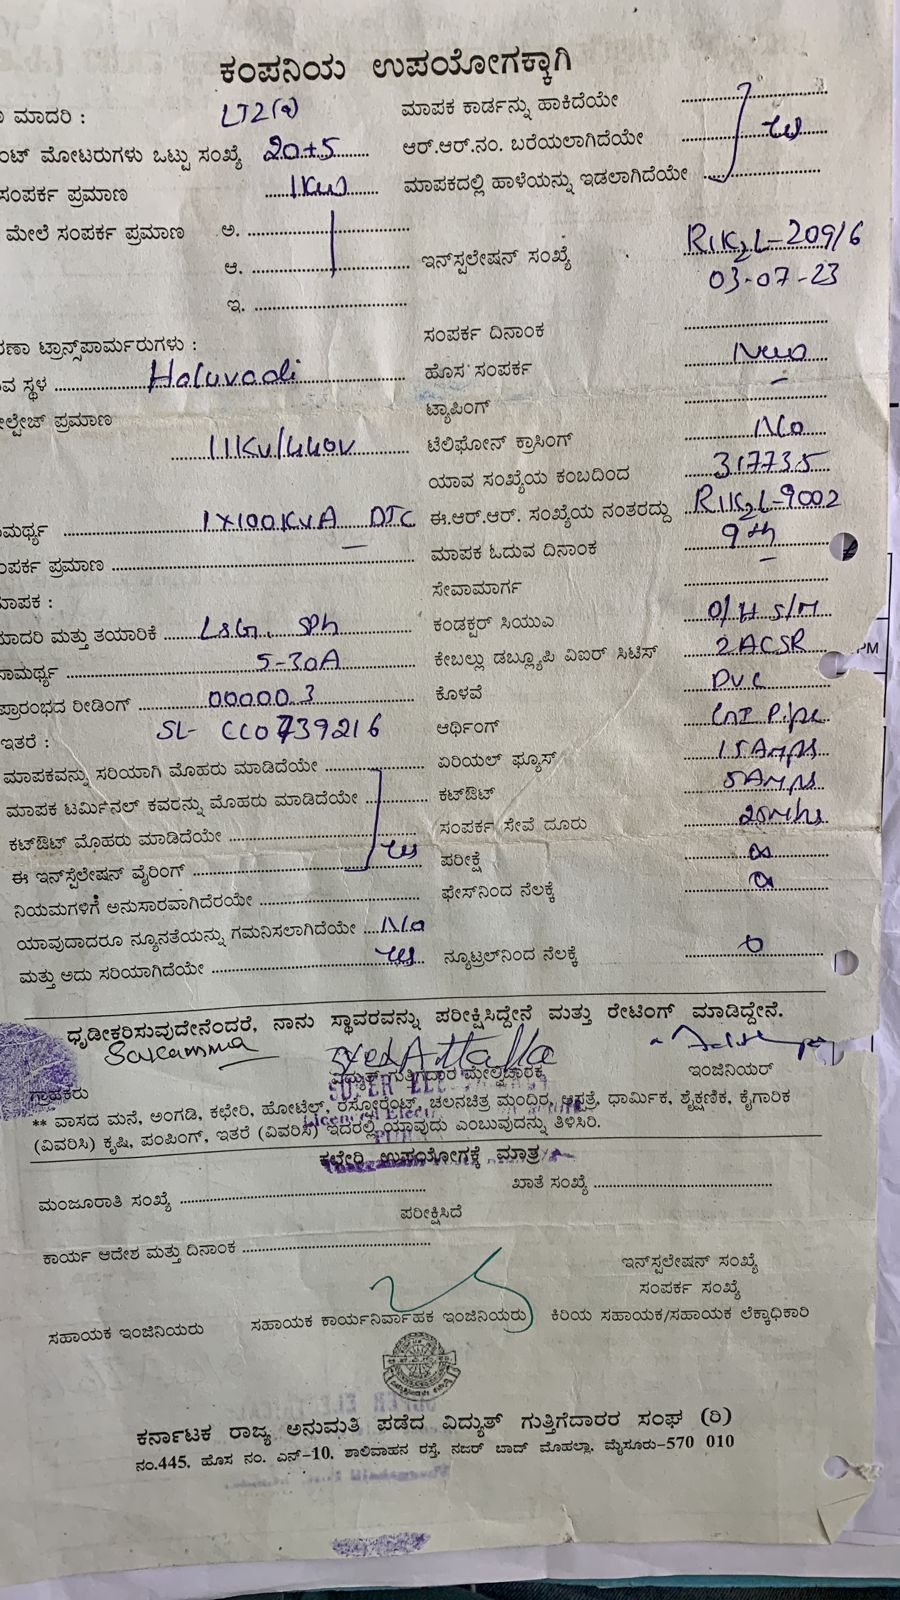 ಕಂಪನಿಯ ಉಪಯೋಗಕ್ಕಾಗಿ
ಮಾದರಿ : LT2(a) ಮಾಪಕ ಕಾರ್ಡನ್ನು ಹಾಕಿದೆಯೇ
ಮೋಟರುಗಳು ಒಟ್ಟು ಸಂಖ್ಯೆ 20+5 ಆರ್.ಆರ್.ನಂ. ಬರೆಯಲಾಗಿದೆಯೇ yes
ಸಂಪರ್ಕ ಪ್ರಮಾಣ 1Kw ಮಾಪಕದಲ್ಲಿ ಹಾಳೆಯನ್ನು ಇಡಲಾಗಿದೆಯೇ
ಮೇಲೆ ಸಂಪರ್ಕ ಪ್ರಮಾಣ ಅ.
ಆ. ಇನ್‌ಸ್ಪಲೇಷನ್ ಸಂಖ್ಯೆ R1K2L-20916
03-07-23
ಇ.
ಟ್ರಾನ್ಸ್‌ಪಾರ್ಮರುಗಳು : ಸಂಪರ್ಕ ದಿನಾಂಕ
ಸ್ಥಳ Haluvadi ಹೊಸ ಸಂಪರ್ಕ New
ಪ್ರಮಾಣ ಟ್ಯಾಪಿಂಗ್ –
11KV/440V ಟೆಲಿಫೋನ್ ಕ್ರಾಸಿಂಗ್ No
ಯಾವ ಸಂಖ್ಯೆಯ ಕಂಬದಿಂದ 317735
1X100KVA DTC ಈ.ಆರ್.ಆರ್. ಸಂಖ್ಯೆಯ ನಂತರದ್ದು R1K2L-9002
ಪ್ರಮಾಣ ಮಾಪಕ ಓದುವ ದಿನಾಂಕ 9th
ಸೇವಾಮಾರ್ಗ –
ಮಾದರಿ ಮತ್ತು ತಯಾರಿಕೆ L&G, SPh ಕಂಡಕ್ಟರ್ ಸಿಯುಎ O/H S/M
5-30A ಕೇಬಲ್ಲು ಡಬ್ಲ್ಯೂಪಿ ವಿಐರ್ ಸಿಟಿಸ್ 2ACSR
ಪ್ರಾರಂಭದ ರೀಡಿಂಗ್ 00000.3 ಕೊಳವೆ PVC
ಇತರೆ : SL- CC0739216 ಆರ್ಥಿಂಗ್ GI Pipe
ಮಾಪಕವನ್ನು ಸರಿಯಾಗಿ ಮೊಹರು ಮಾಡಿದೆಯೇ ಏರಿಯಲ್ ಫ್ಯೂಸ್ 15Amps
ಮಾಪಕ ಟರ್ಮಿನಲ್ ಕವರನ್ನು ಮೊಹರು ಮಾಡಿದೆಯೇ ಕಟ್‌ಔಟ್ 5Amps
ಕಟ್‌ಔಟ್ ಮೊಹರು ಮಾಡಿದೆಯೇ ಸಂಪರ್ಕ ಸೇವೆ ದೂರು
ಈ ಇನ್‌ಸ್ಪೆಲೇಷನ್ ವೈರಿಂಗ್ yes ಪರೀಕ್ಷೆ
ನಿಯಮಗಳಿಗೆ ಅನುಸಾರವಾಗಿದೆರಯೇ ಫೇಸ್‌ನಿಂದ ನೆಲಕ್ಕೆ
ಯಾವುದಾದರೂ ನ್ಯೂನತೆಯನ್ನು ಗಮನಿಸಲಾಗಿದೆಯೇ No
ಮತ್ತು ಅದು ಸರಿಯಾಗಿದೆಯೇ yes ನ್ಯೂಟ್ರಲ್‌ನಿಂದ ನೆಲಕ್ಕೆ 0
ಧೃಡೀಕರಿಸುವುದೇನೆಂದರೆ, ನಾನು ಸ್ಥಾವರವನ್ನು ಪರೀಕ್ಷಿಸಿದ್ದೇನೆ ಮತ್ತು ರೇಟಿಂಗ್ ಮಾಡಿದ್ದೇನೆ.
ಗ್ರಾಹಕರು ವಿದ್ಯುತ್ ಗುತ್ತಿಗೆದಾರ ಮೇಲ್ವಿಚಾರಕ ಇಂಜಿನಿಯರ್
** ವಾಸದ ಮನೆ, ಅಂಗಡಿ, ಕಛೇರಿ, ಹೋಟೆಲ್, ರೆಸ್ಟೋರೆಂಟ್, ಚಲನಚಿತ್ರ ಮಂದಿರ, ಆಸ್ಪತ್ರೆ, ಧಾರ್ಮಿಕ, ಶೈಕ್ಷಣಿಕ, ಕೈಗಾರಿಕ
(ವಿವರಿಸಿ) ಕೃಷಿ, ಪಂಪಿಂಗ್, ಇತರೆ (ವಿವರಿಸಿ) ಇದರಲ್ಲಿ ಯಾವುದು ಎಂಬುವುದನ್ನು ತಿಳಿಸಿರಿ.
ಕಛೇರಿ ಉಪಯೋಗಕ್ಕೆ ಮಾತ್ರ
ಮಂಜೂರಾತಿ ಸಂಖ್ಯೆ ಖಾತೆ ಸಂಖ್ಯೆ
ಪರೀಕ್ಷಿಸಿದೆ
ಕಾರ್ಯ ಆದೇಶ ಮತ್ತು ದಿನಾಂಕ
ಇನ್‌ಸ್ಪಲೇಷನ್ ಸಂಖ್ಯೆ
ಸಂಪರ್ಕ ಸಂಖ್ಯೆ
ಸಹಾಯಕ ಇಂಜಿನಿಯರು ಸಹಾಯಕ ಕಾರ್ಯನಿರ್ವಾಹಕ ಇಂಜಿನಿಯರು ಕಿರಿಯ ಸಹಾಯಕ/ಸಹಾಯಕ ಲೆಕ್ಕಾಧಿಕಾರಿ
ಕರ್ನಾಟಕ ರಾಜ್ಯ ಅನುಮತಿ ಪಡೆದ ವಿದ್ಯುತ್ ಗುತ್ತಿಗೆದಾರರ ಸಂಘ (ರಿ)
ನಂ.445, ಹೊಸ ನಂ. ಎನ್-10, ಶಾಲಿವಾಹನ ರಸ್ತೆ, ನಜರ್ ಬಾದ್ ಮೊಹಲ್ಲಾ, ಮೈಸೂರು-570 010